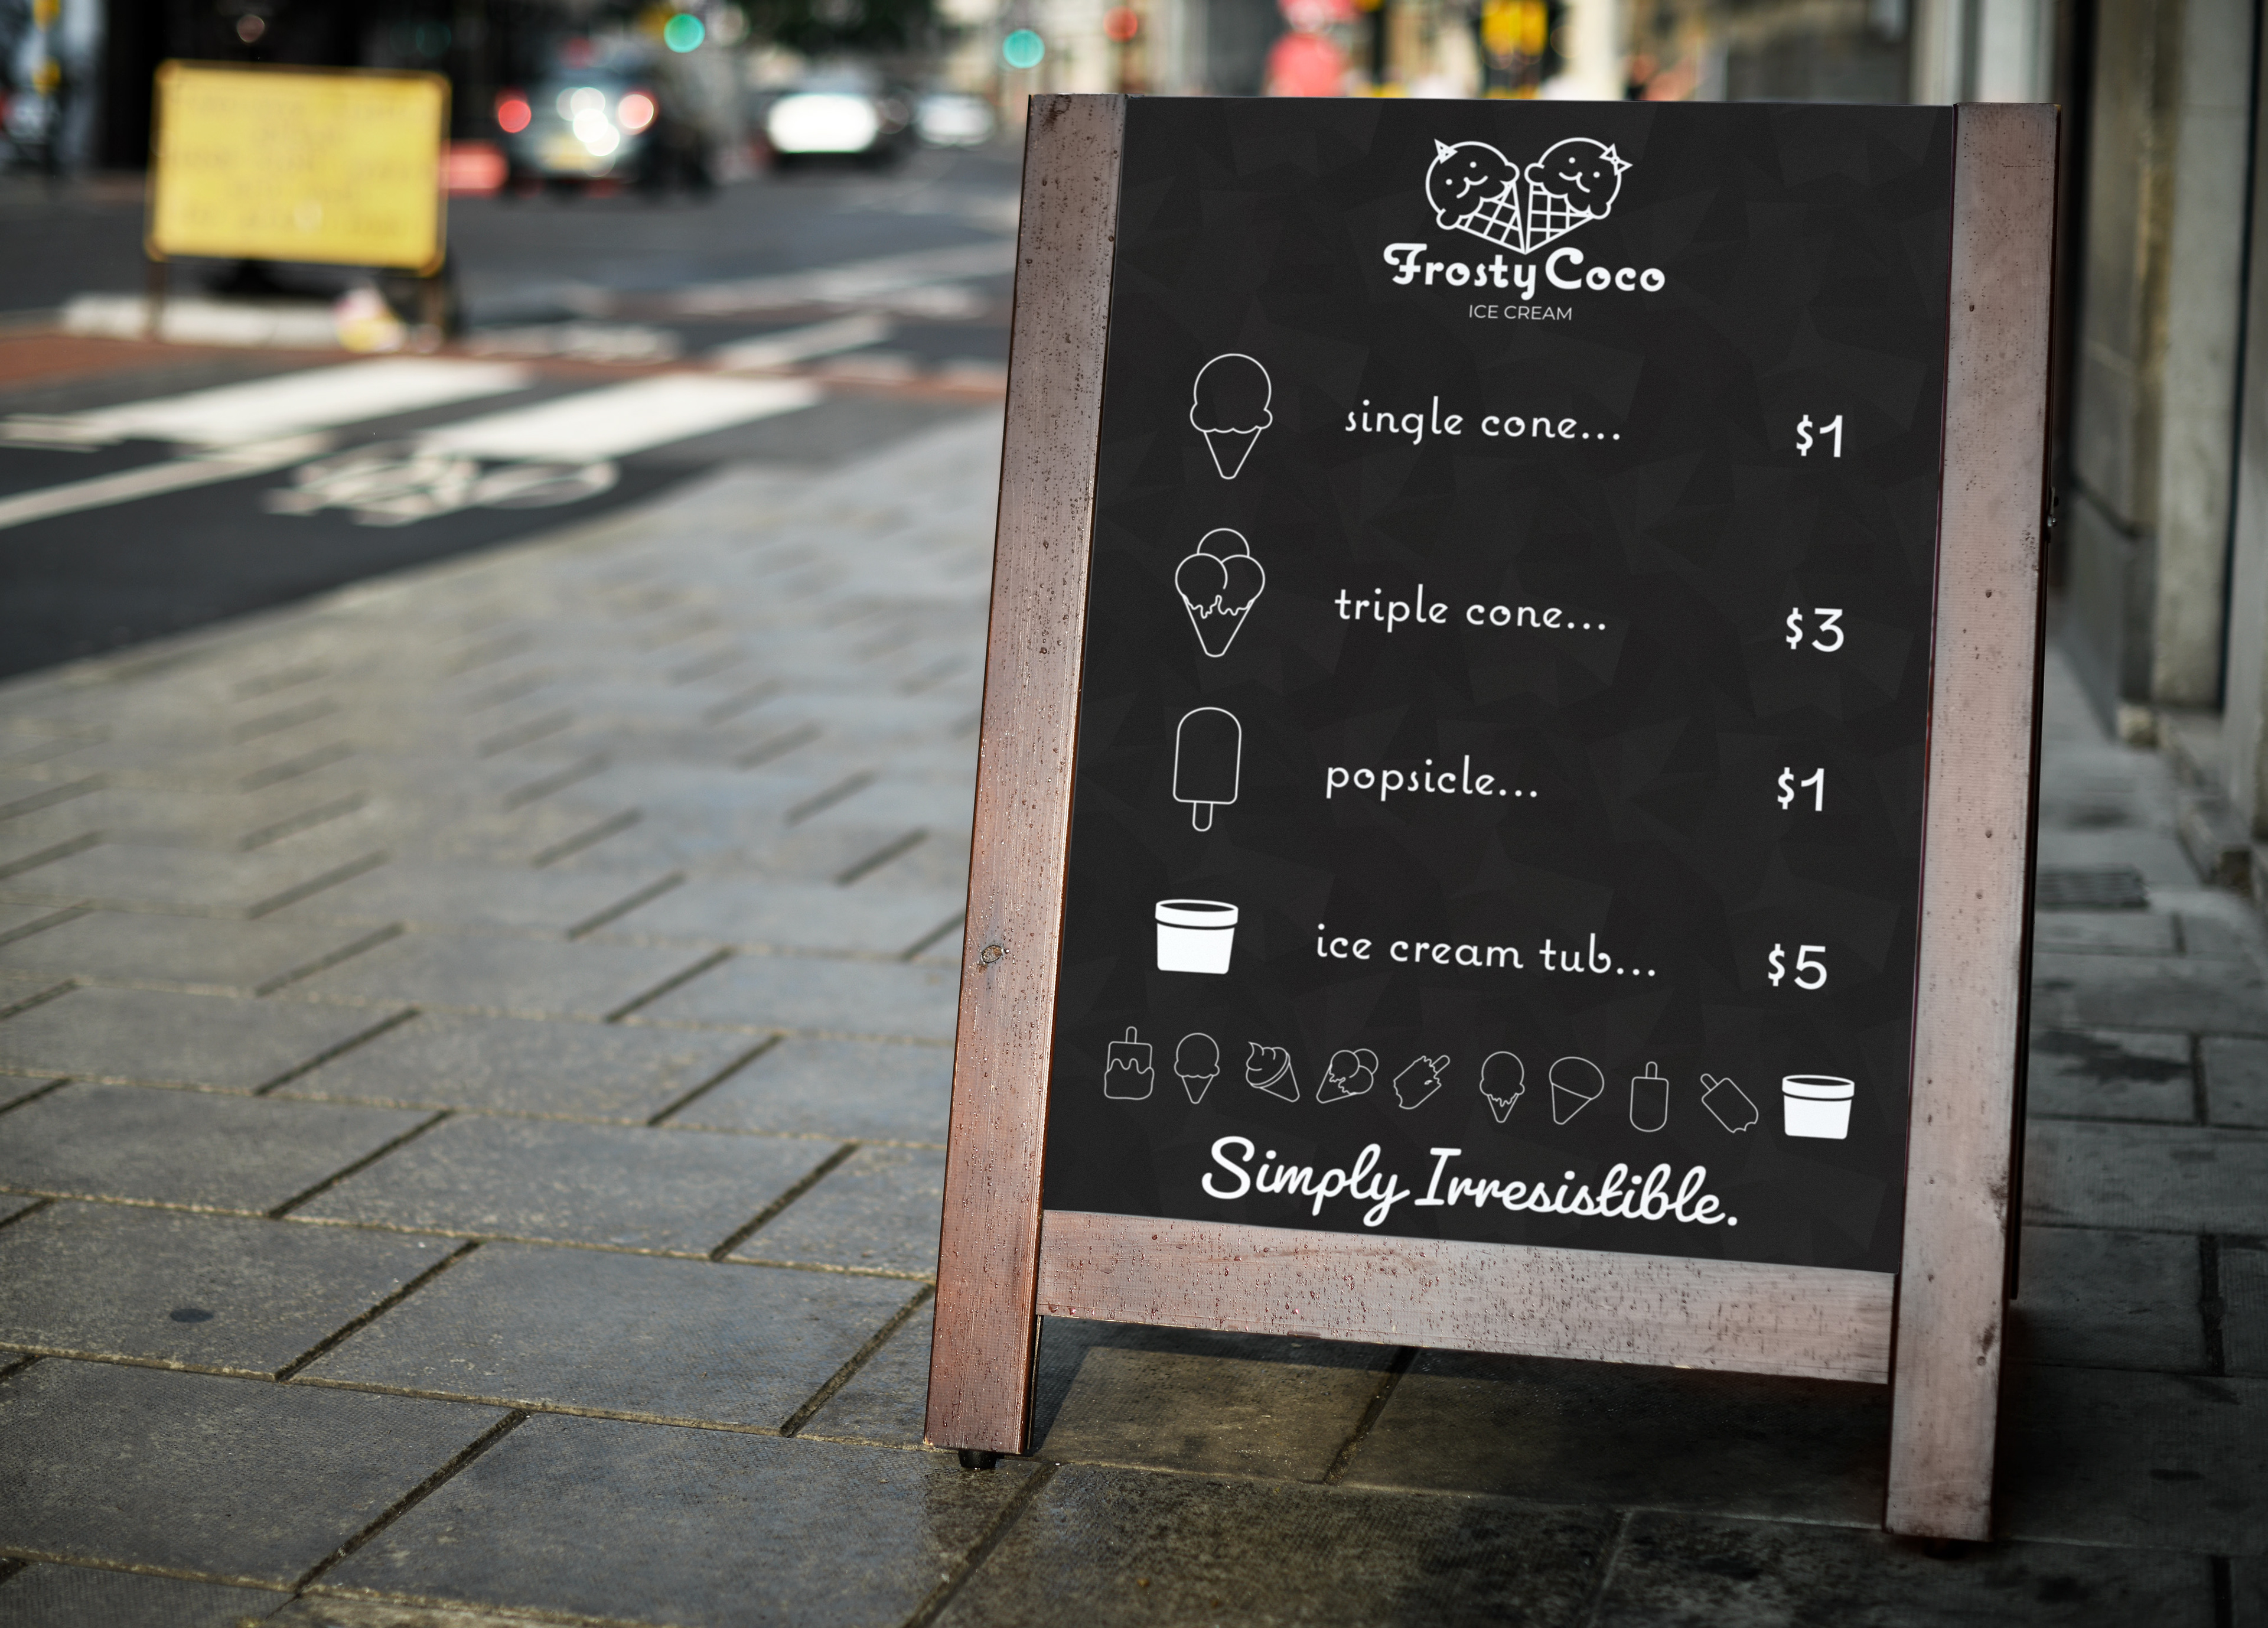 Frosty Coco
ICE CREAM
single cone... $1
triple cone... $3
popsicle... $1
ice cream tub... $5
Simply Irresistible.